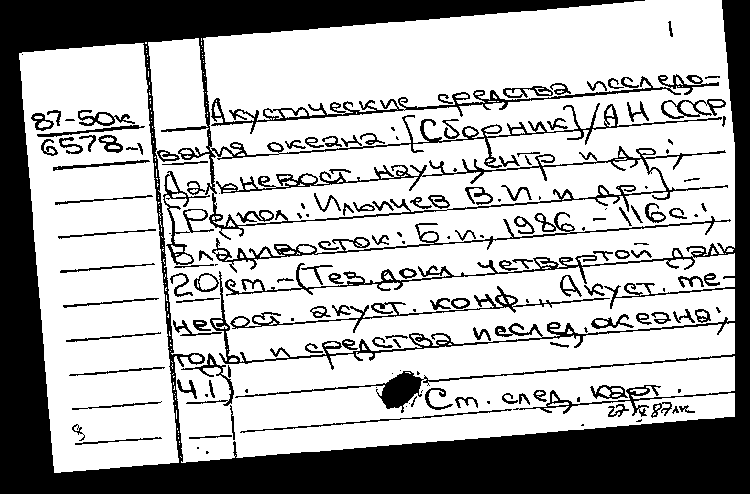 1
87-50к
6578-1
Акустические средства исследо=
вания океана: [Сборник]/АН СССР,
Дальневост. науч. центр и др.;
[Редкол.: Ильичев В.И. и др.] –
Владивосток: Б.и., 1986. – 116с.;
20 см. – (Тез. докл. четвертой даль
невост. акуст. конф. „Акуст. ме–
тоды и средства исслед. океана;
Ч.1).
См. след. карт.
8